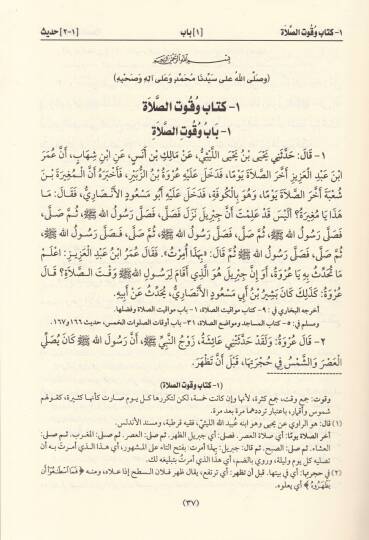 ١- كتاب وُقُوتِ الصَّلاَة [١] باب [١-٢] حديث
بِسْمِ اللهِ الرَّحْمٰنِ الرَّحِيمِ
(وصلَّى اللهُ على سيِّدنا مُحَمَّدٍ وَعَلى آلِهِ وَصَحْبِهِ)
١- كتاب وُقُوتِ الصَّلاَة
١- بَابُ وُقُوتِ الصَّلاَةِ
١ - قَالَ: حَدَّثَنِي يَحْيَى بْنُ يَحْيَى اللَّيْثِيُّ، عَنْ مَالِكِ بْنِ أَنَسٍ، عَنِ ابْنِ شِهَابٍ، أَنَّ عُمَرَ
ابْنَ عَبْدِ الْعَزِيزِ أَخَّرَ الصَّلاَةَ يَوْمًا، فَدَخَلَ عَلَيْهِ عُرْوَةُ بْنُ الزُّبَيْرِ، فَأَخْبَرَهُ أَنَّ الْمُغِيرَةَ بْنَ
شُعْبَةَ أَخَّرَ الصَّلاَةَ يَوْمًا، وَهُوَ بِالْكُوفَةِ، فَدَخَلَ عَلَيْهِ أَبُو مَسْعُودٍ الأَنْصَارِيُّ، فَقَالَ: مَا
هَذَا يَا مُغِيرَةُ؟ أَلَيْسَ قَدْ عَلِمْتَ أَنَّ جِبْرِيلَ نَزَلَ فَصَلَّى، فَصَلَّى رَسُولُ الله ﷺ، ثُمَّ صَلَّى،
فَصَلَّى رَسُولُ الله ﷺ، ثُمَّ صَلَّى، فَصَلَّى رَسُولُ الله ﷺ، ثُمَّ صَلَّى، فَصَلَّى رَسُولُ الله ﷺ،
ثُمَّ صَلَّى، فَصَلَّى رَسُولُ الله ﷺ ثُمَّ قَالَ: «بِهَذَا أُمِرْتُ». فَقَالَ عُمَرُ ابْنُ عَبْدِ الْعَزِيزِ: اعْلَمْ
مَا تُحَدِّثُ بِهِ يَا عُرْوَةُ، أَوَ إِنَّ جِبْرِيلَ هُوَ الَّذِي أَقَامَ لِرَسُولِ اللهِ ﷺ وَقْتَ الصَّلاَةِ؟ قَالَ
عُرْوَةُ: كَذَلِكَ كَانَ بَشِيرُ بْنُ أَبِي مَسْعُودٍ الأَنْصَارِيُّ، يُحَدِّثُ عَنْ أَبِيهِ.
أخرجه البخاري في: ٩- كتاب مواقيت الصلاة، ١- باب مواقيت الصلاة وفضلها.
ومسلم في: ٥- كتاب المساجد ومواضع الصلاة، ٣١- باب أوقات الصلوات الخمس، حديث ١٦٦ و١٦٧.
٢- قَالَ عُرْوَةُ: وَلَقَدْ حَدَّثَتْنِي عَائِشَةُ، زَوْجُ النَّبِيِّ ﷺ، أَنَّ رَسُولَ الله ﷺ كَانَ يُصَلِّي
الْعَصْرَ وَالشَّمْسُ فِي حُجْرَتِهَا، قَبْلَ أَنْ تَظْهَرَ.
(١- كتاب وقوت الصلاة)
وقوت: جمع وقت، جمع كثرة، لأنها وإن كانت خمسة، لكن لتكررها كل يوم صارت كأنها كثيرة، كقولهم
شموس وأقمار، باعتبار ترددهما مرة بعد مرة.
(١) قال: هو الراوي عن يحيى وهو ابنه عُبيد الله الليثيّ، فقيه قرطبة، ومسند الأندلس.
أخر الصلاة يومًا: أي صلاة العصر. فصلى: أي جبريل الظهر. ثم صلى: العصر. ثم صلى: المغرب. ثم صلى:
العشاء. ثم صلى: الصبح. ثم قال: جبريل. بهذا أمرت: بفتح التاء على المشهور، أي هذا الذي أمرتَ به أن
تصليه كل يوم وليلة، وروي بالضم، أي هذا الذي أمرتُ بتبليغه لك.
(٢) في حجرتها: أي في بيتها. قبل أن تظهر: أي ترتفع، يقال ظهر فلان السطح إذا علاه، ومنه ﴿فَمَا اسْطَاعُوا أَن
يَظْهَرُوهُ﴾ أي يعلوه.
(٣٧)